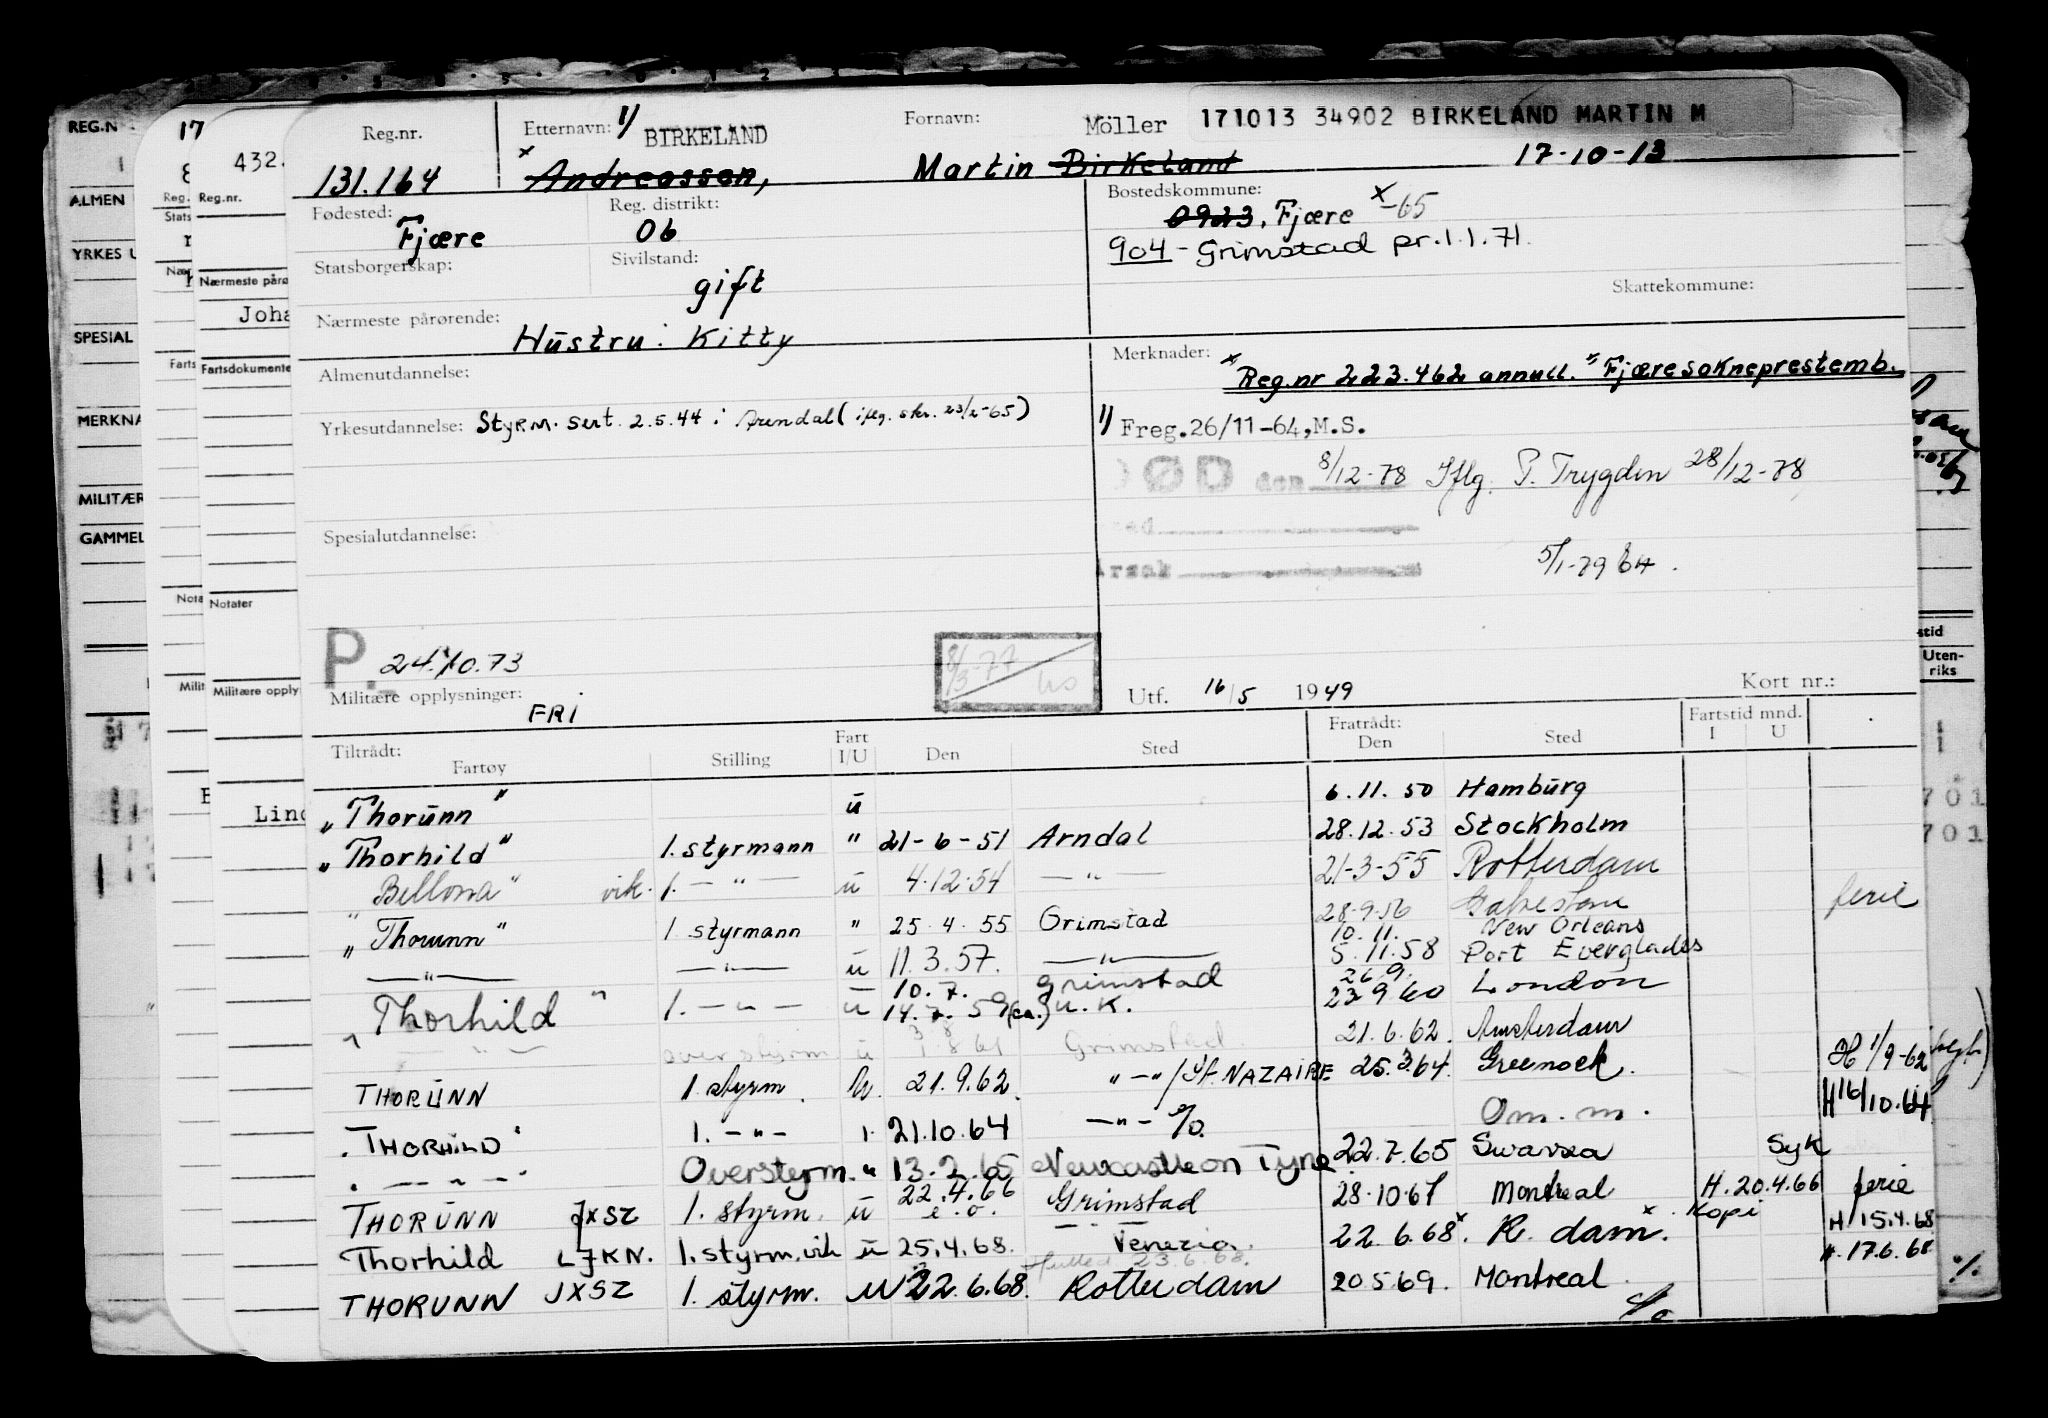 171013 34902 BIRKELAND MARTIN M
Reg.nr. Etternavn: 1/ BIRKELAND Fornavn: Möller
131.164 x Andreassen, Martin Birkeland 17-10-13
Fødested: Fjære Reg. distrikt: 06 Bostedskommune: 0923, Fjære x-65
904 - Grimstad pr. 1.1.71.
Statsborgerskap: Sivilstand: gift Skattekommune:
Nærmeste pårørende: Hustru: Kitty
Almenutdannelse: Merknader: x Reg.nr 223.462 annull. " Fjære sokneprestemb.
Yrkesutdannelse: Styrm. sert. 2.5.44 i Arendal (iflg. skr. 23/2-65)
1/ Freg.26/11-64,M.S.
DØD den 8/12-78 Iflg. P. Trygden 28/12-78
Spesialutdannelse:
Årsak 5/1-79
P. 24.10.73
8/3-77
Militære opplysninger: FRI Utf. 16/5 1949 Kort nr.:
Tiltrådt: Fartøy Stilling Fart I/U Den Sted Fratrådt: Den Sted Fartstid mnd. I U
"Thorunn" u 6.11.50 Hamburg
"Thorhild" 1. styrmann " 21-6-51 Arndal 28.12.53 Stockholm
"Bellona" vik. 1. — " — u 4.12.54 — " — 21-3-55 Rotterdam
"Thorunn" 1 styrmann " 25.4.55 Grimstad 28.9.56 ferie
10.11. New Orleans
— " — — " — u 11.3.57. — " — 5.11.58 Port Everglades
10.7. Grimstad 26.9.
"Thorhild" 1. — " — u 14.7.59 (ca.) U.K. 23 9 60 London
— " — overstyrm u 8 61 Grimstad. 21.6.62. Amsterdam
THORUNN 1 styrm. 21.9.62. " — " / St. NAZAIRE 25.3.64. Greenock. H 1/9-62
"THORHILD" 1. — " — 21.10.64 — " — Om. m. H 16/10.64
" — " — " Overstyrm. " 13.2.65 Newcastle on Tyne 22.7.65 Swansea Syk
THORUNN JXSZ 1. styrm. u 22.4.66 e.o. Grimstad 28.10.67 Montreal H. 20.4.66 Kopi ferie
Thorhild LJKN. 1. styrm. vik u 25.4.68. Venezia. 22.6.68 x. R.dam x. H 15.4.68
23.6.68. H. 17.6.68
THORUNN JXSZ 1. styrm. u 22.6.68. Rotterdam 20.5.69. Montreal
REG.N
ALMEN
YRKES U
SPESIAL
MERKNA
MILITÆR
GAMMEL
17
432.
Reg.nr.
Nærmeste påro
Joha
Fartsdokumente
Notater
Militære opply
Lind
Uten-
riks
701
701